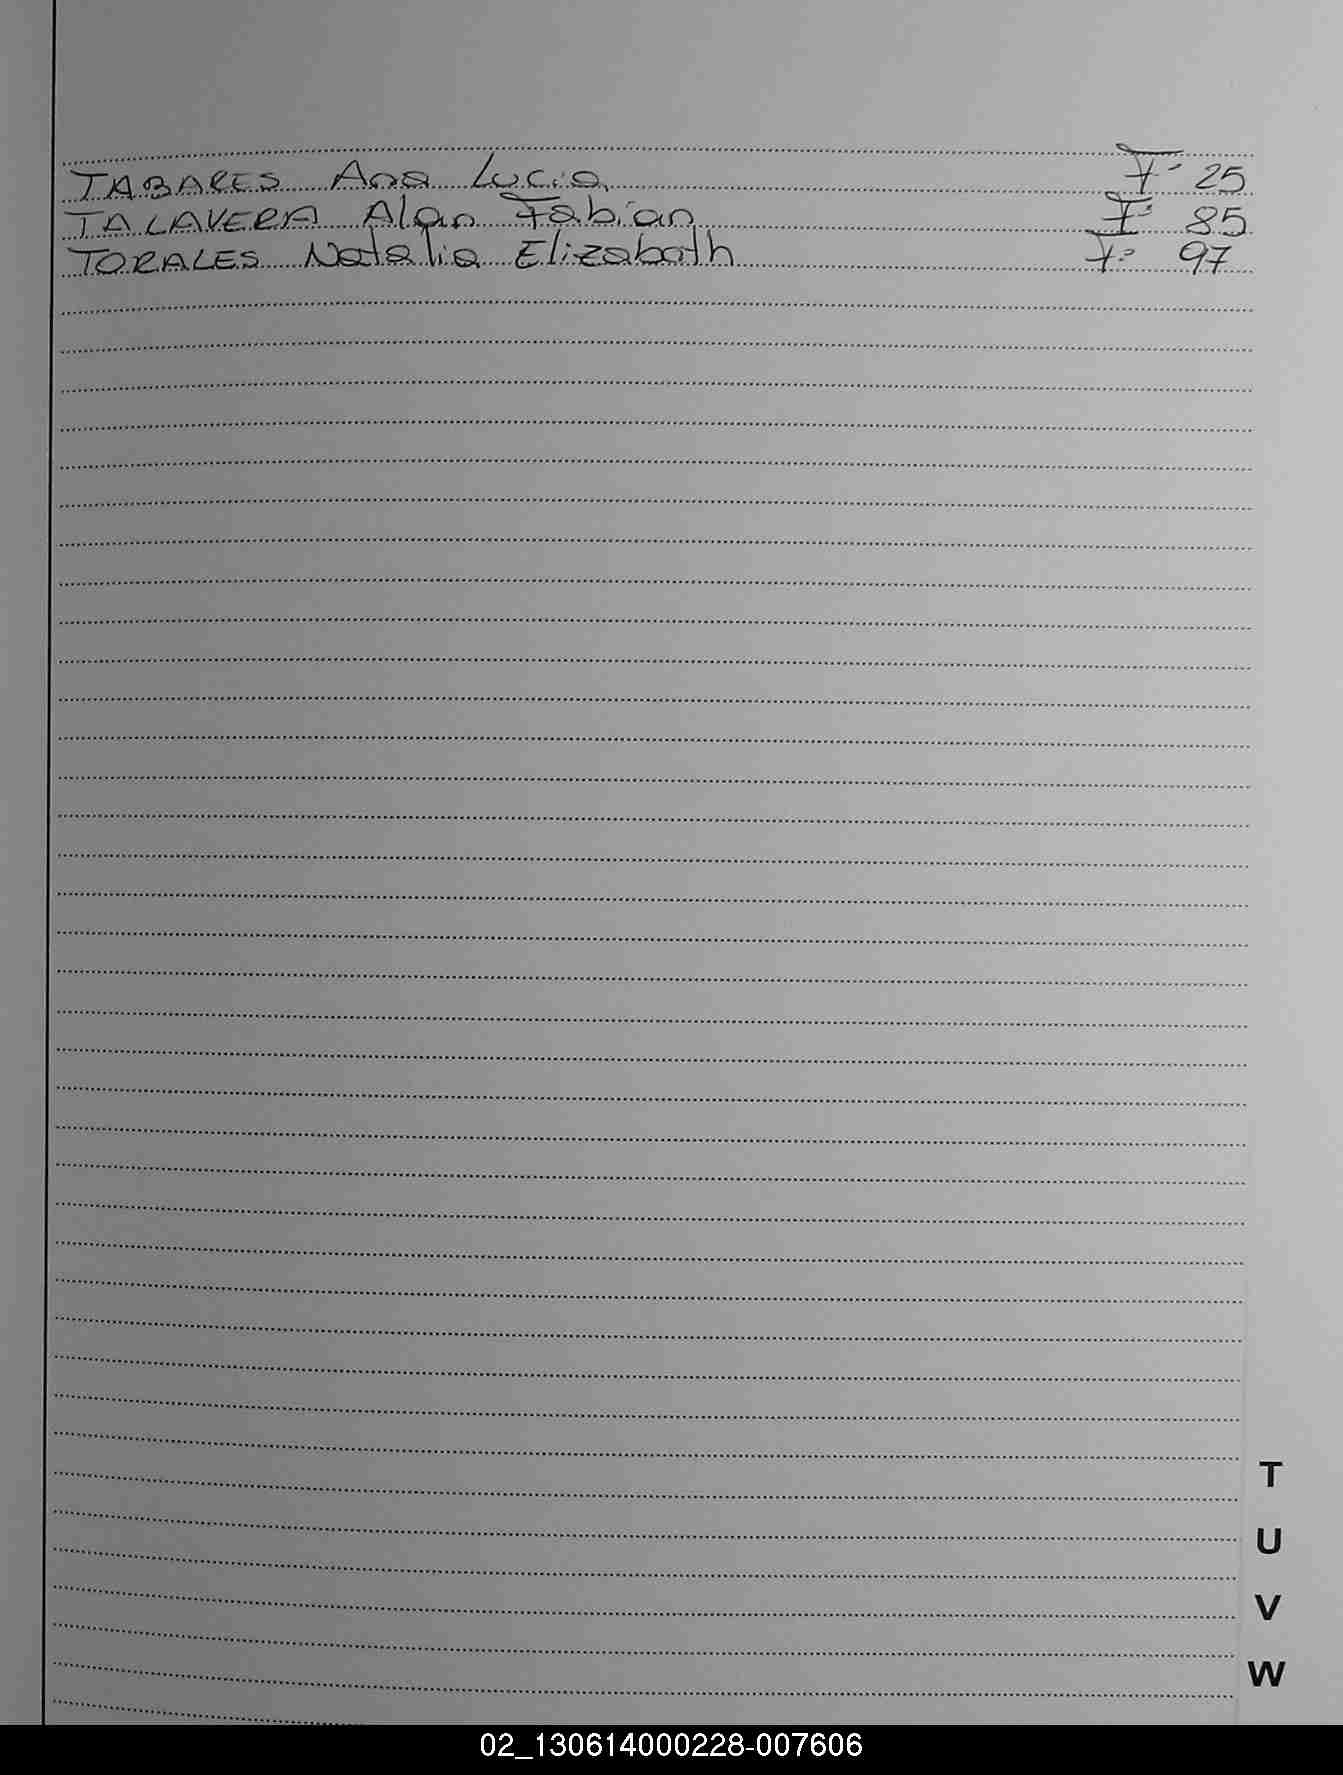 TABARES Ana Lucia F° 25
TALAVERA Alan Fabian F° 85
TORALES Natalia Elizabath F° 97
T
U
V
W
02_130614000228-007606